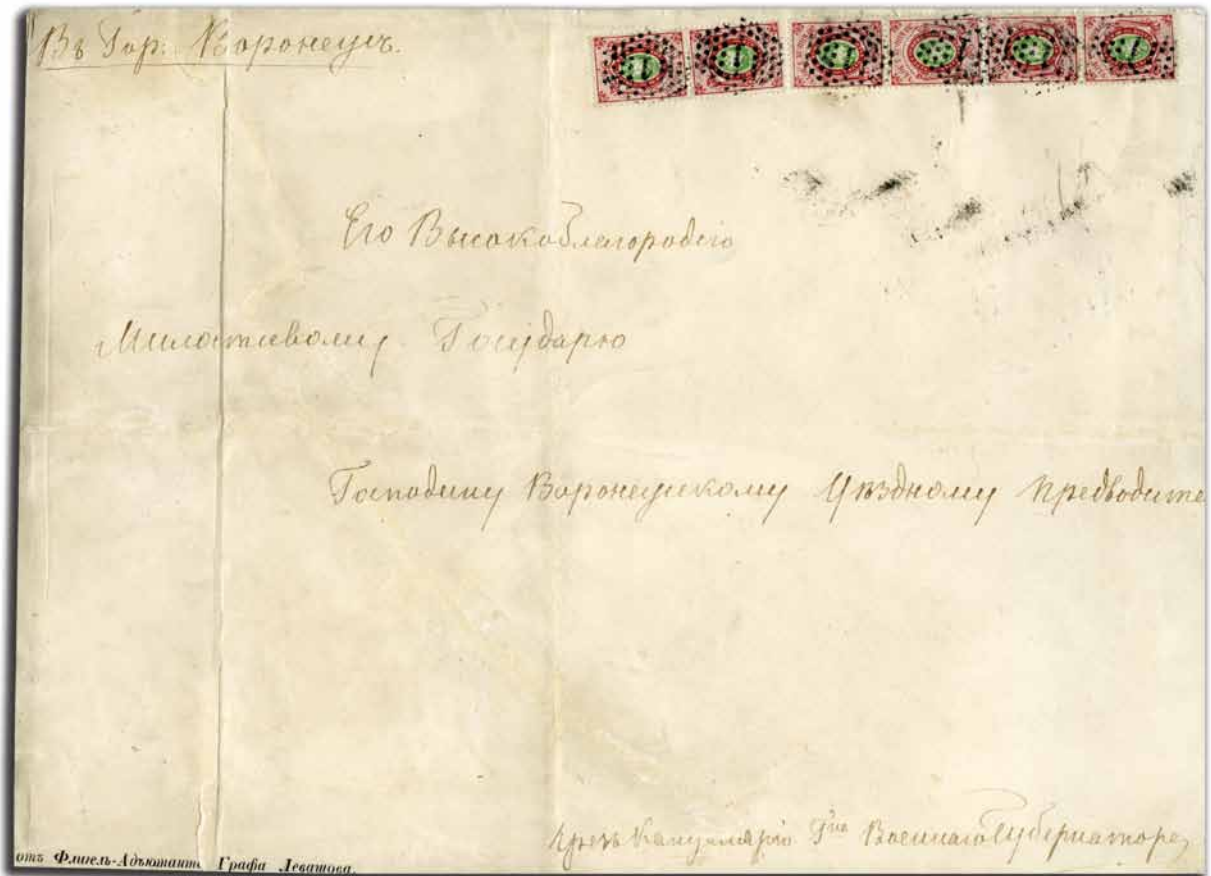 Въ Гор. Воронежъ.
Его Высокоблагородiю
Милостивому Государю
Господину Воронежскому Уѣздному Предводите
Чрезъ Канцелярiю Гна Военнаго Губернатора
отъ Флигель-Адъютанта Графа Левашова.